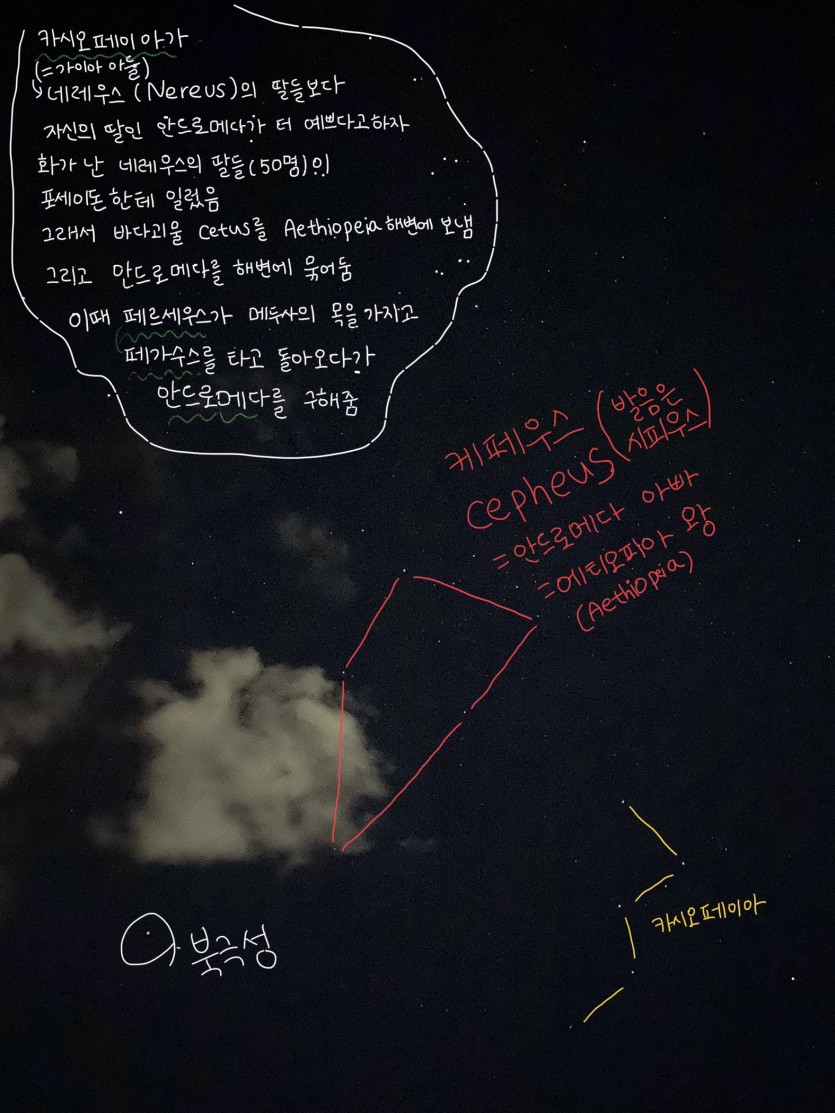 카시오페이아가
(=가이아 아들)
↳네레우스(Nereus)의 딸들보다
자신의 딸인 안드로메다가 더 예쁘다고하자
화가 난 네레우스의 딸들(50명)이
포세이돈한테 일렀음
그래서 바다괴물 cetus를 Aethiopeia해변에 보냄
그리고 안드로메다를 해변에 묶어둠
이때 페르세우스가 메두사의 목을 가지고
페가수스를 타고 돌아오다가
안드로메다를 구해줌
케페우스 (발음은
cepheus 시피우스)
=안드로메다 아빠
=에티오피아 왕
(Aethiopeia)
카시오페이아
북극성